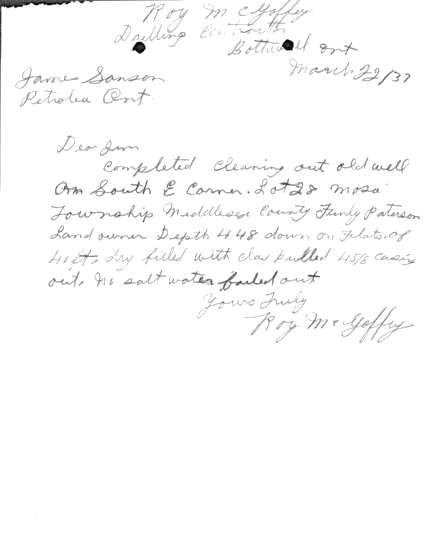 Roy McGoffey
Drilling Contractor
Bothwell Ont
March 22/37
James Sanson
Petrolea Ont.
Dear Jim
completed cleaning out old well
On South E Corner. Lot 28 Mosa
Township Middlesex County Finly Paterson
Land owner Depth 448 down on Flats. of
40 ft. dry filled with clay pulled 4 5/8 casing
out. No salt water bailed out
Yours Truly
Roy McGoffey